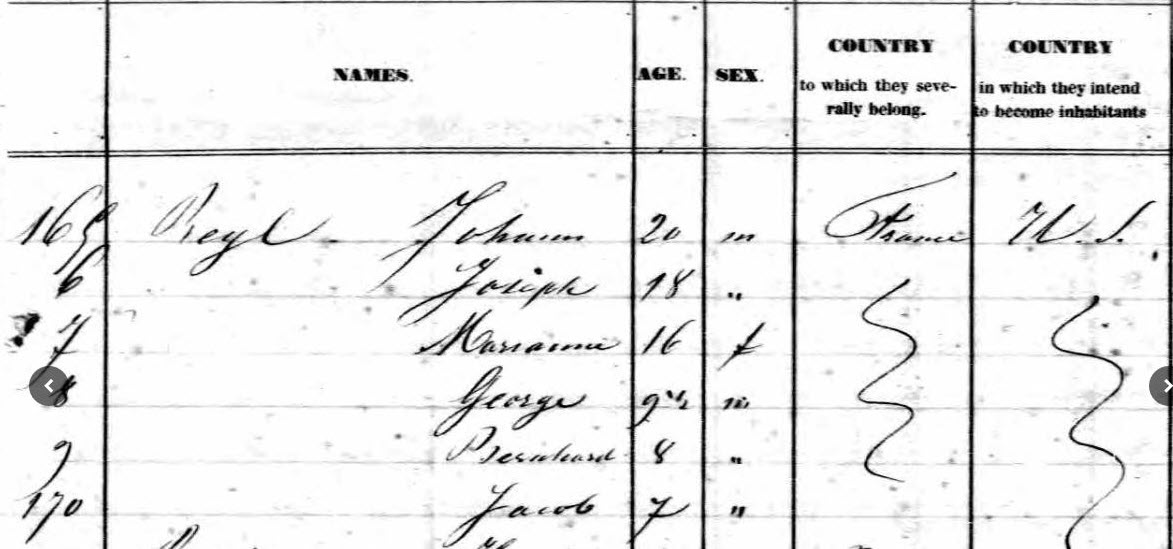 NAMES. AGE. SEX. COUNTRY to which they seve-rally belong. COUNTRY in which they intend to become inhabitants
165 Reyl Johann 20 m France U. S.
6 Joseph 18 "
7 Marianne 16 f
8 George 9 1/2 m
9 Bernhard 8 "
170 Jacob 7 "